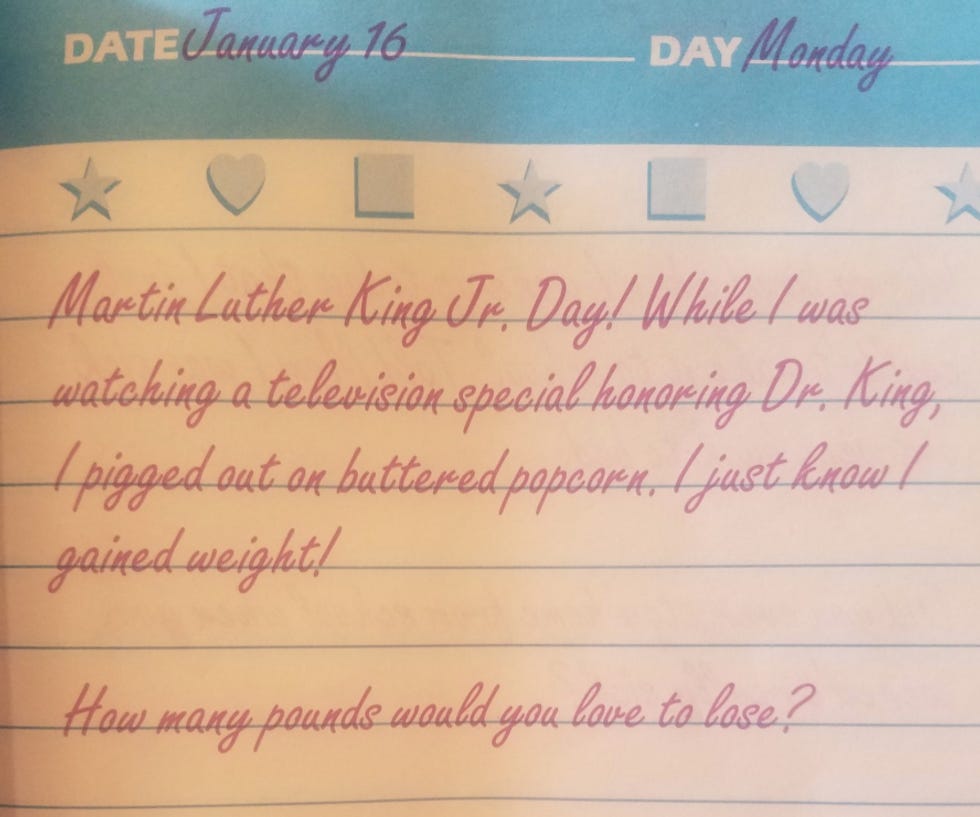 DATE January 16 DAY Monday
Martin Luther King Jr. Day! While I was
watching a television special honoring Dr. King,
I pigged out on buttered popcorn. I just know I
gained weight!
How many pounds would you love to lose?